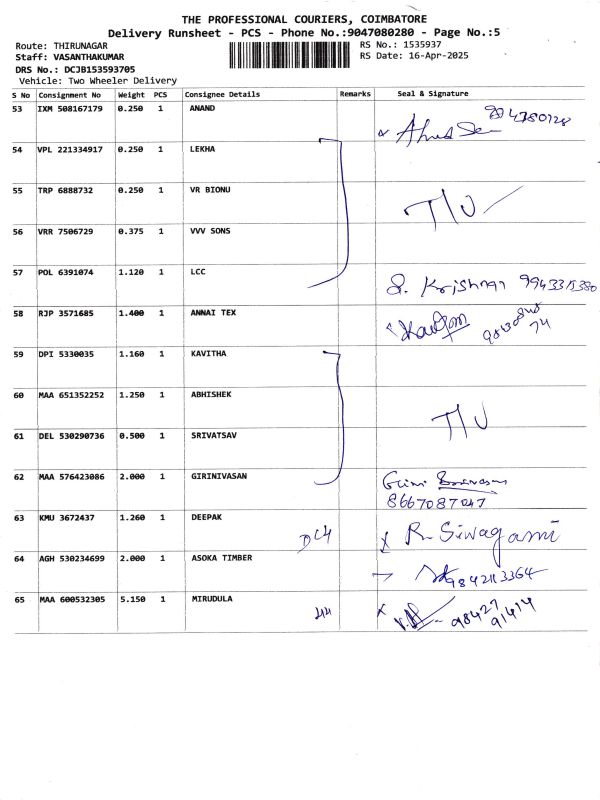 THE PROFESSIONAL COURIERS, COIMBATORE
Delivery Runsheet - PCS - Phone No.:9047080280 - Page No.:5
Route: THIRUNAGAR RS No.: 1535937
Staff: VASANTHAKUMAR RS Date: 16-Apr-2025
DRS No.: DCJB153593705
Vehicle: Two Wheeler Delivery
S No Consignment No Weight PCS Consignee Details Remarks Seal & Signature
53 IXM 508167179 0.250 1 ANAND
54 VPL 221334917 0.250 1 LEKHA
55 TRP 6888732 0.250 1 VR BIONU T/U
56 VRR 7506729 0.375 1 VVV SONS
57 POL 6391074 1.120 1 LCC S. Krishnan
58 RJP 3571685 1.400 1 ANNAI TEX
59 DPI 5330035 1.160 1 KAVITHA
60 MAA 651352252 1.250 1 ABHISHEK T/U
61 DEL 530290736 0.500 1 SRIVATSAV
62 MAA 576423086 2.000 1 GIRINIVASAN
8667087047
63 KMU 3672437 1.260 1 DEEPAK R. Siwagami
64 AGH 530234699 2.000 1 ASOKA TIMBER 9842113364
65 MAA 600532305 5.150 1 MIRUDULA 98427
91414